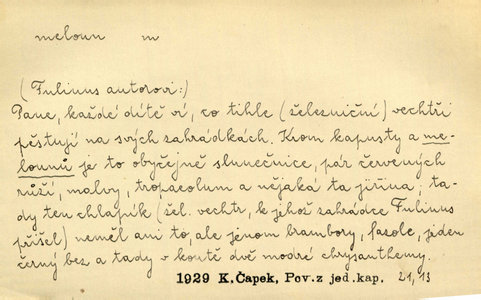 meloun m
(Fulinus autorovi:)
Pane, každé dítě ví, co tihle (železniční) vechtři
pěstují na svých zahrádkách. Krom kapusty a me-
lounů je to obyčejně slunečnice, pár červených
růží, malvy, tropaeolum a nějaká ta jiřina; ta-
dy ten chlapík (žel. vechtr, k jehož zahrádce Fulinus
přišel) neměl ani to, ale jenom brambory, fasole, jeden
černý bez a tady v koutě dvě modré chrysanthemy.
1929 K.Čapek, Pov.z jed.kap. 21,13